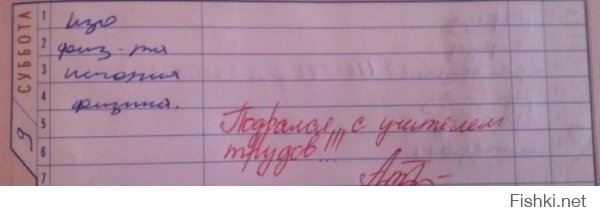 СУББОТА 9
1 Изо
2 физ-ра
3 история
4 физика.
5 Подрался с учителем
6 трудов!!!
7
Fishki.net